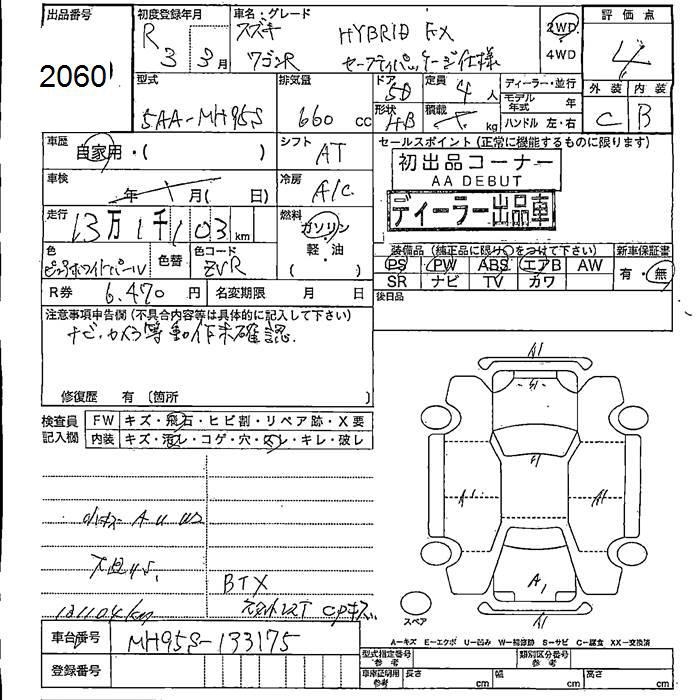 出品番号
2060
初度登録年月
R 3 3月
車名・グレード
スズキ HYBRID FX
ワゴンR セーフティパッケージ仕様
2WD
4WD
評価点
4
外装 内装
C B
型式
5AA-MH95S
排気量
660 cc
ドア
5D
定員
4人
形状
HB
積載
kg
ディーラー・並行
モデル年式 年
ハンドル 左・右
車歴
自家用・( )
シフト
AT
セールスポイント(正常に機能するものに限ります)
初出品コーナー
AA DEBUT
ディーラー出品車
車検
年 月( 日)
冷房
A/C
走行
13万1千103km
燃料
ガソリン
軽・油
( )
色
ピュアホワイトパール
色替
色コード
ZVR
装備品(純正品に限り○をつけて下さい)
新車保証書
PS PW ABS エアB AW
SR ナビ TV カワ
有・無
R券 6,470円
名変期限 月 日
後日品
注意事項申告欄(不具合内容等は具体的に記入して下さい)
ナビ、カメラ等動作未確認.
修復歴 有〔箇所 〕
検査員
記入欄
FW キズ・飛石・ヒビ割・リペア跡・X要
内装 キズ・汚レ・コゲ・穴・スレ・キレ・破レ
小キズ A U
BTX
131104km
A1
A1
A1
A1
スペア
A-キズ E-エクボ U-凹み W-補修跡 S-サビ C-腐食 XX-交換済
車台番号
MH95S-133175
登録番号
型式指定番号
参考
類別区分番号
参考
車庫証明用
参考
長さ cm
幅 cm
高さ cm